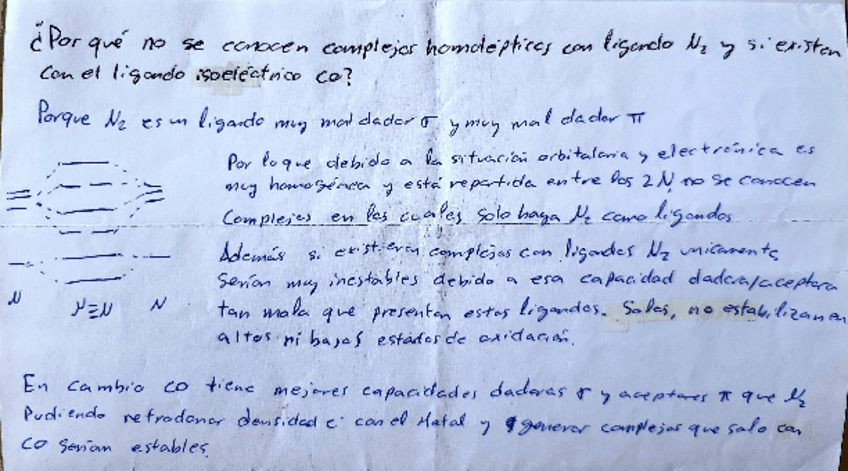 ¿Por qué no se conocen complejos homolépticos con ligando N₂ y si existen
con el ligando isoeléctrico CO?
Porque N₂ es un ligando muy mal dador σ y muy mal dador π
Por lo que debido a la situación orbitalaria y electrónica es
muy homogénea y está repartida entre los 2 N, no se conocen
Complejos en los cuales solo haya N₂ como ligandos
Además si existieran complejos con ligandos N₂ unicamente,
Serían muy inestables debido a esa capacidad dadora/aceptora
tan mala que presentan estos ligandos. Solos, no estabilizan en
altos ni bajos estados de oxidación.
N N≡N N
En cambio CO tiene mejores capacidades dadoras σ y aceptores π que N₂
Pudiendo retrodonar densidad e⁻ con el Metal y generar complejos que solo con
CO serían estables.